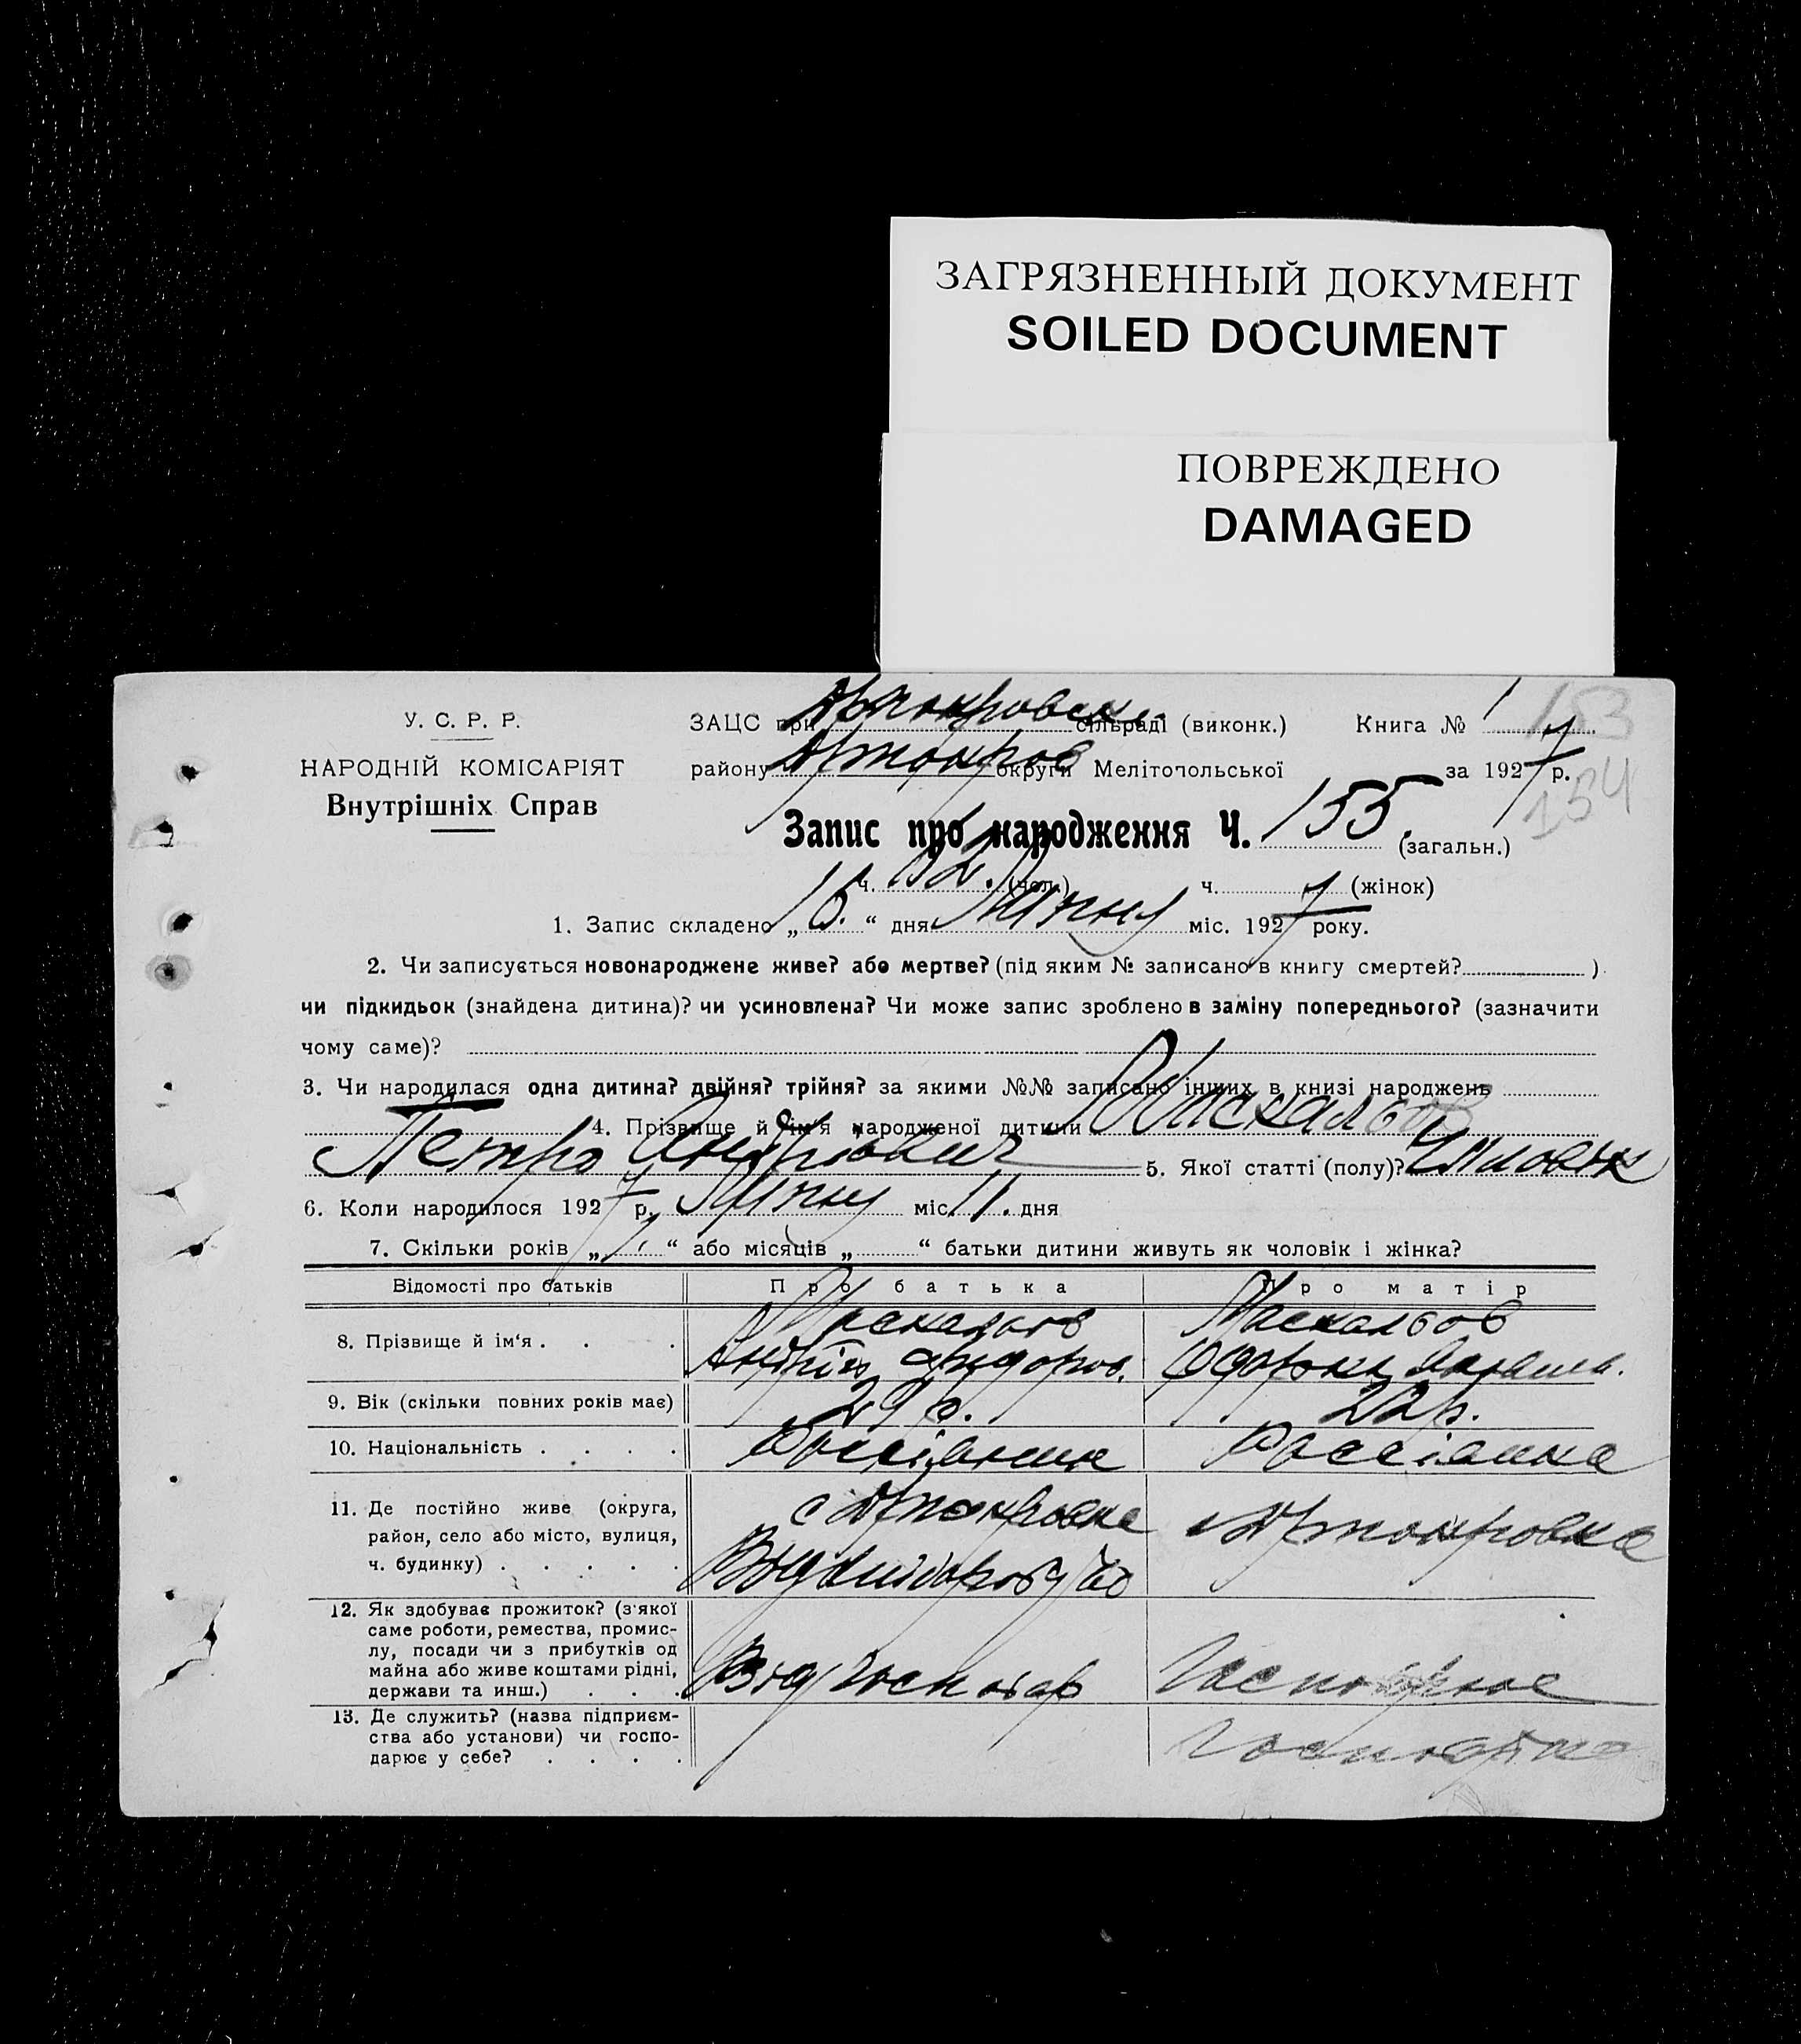 ЗАГРЯЗНЕННЫЙ ДОКУМЕНТ
SOILED DOCUMENT
ПОВРЕЖДЕНО
DAMAGED
У. С. Р. Р.
НАРОДНІЙ КОМІСАРІЯТ
Внутрішніх Справ
ЗАЦС при сільраді (виконк.) Книга № 1 153
району округи Мелітопольської за 1927 р. 154
Запис про народження Ч. 155 (загальн.)
ч. 82. (чол.) ч. (жінок)
1. Запис складено „16.“ дня міс. 1927 року.
2. Чи записується новонароджене живе? або мертве? (під яким № записано в книгу смертей? )
чи підкидьок (знайдена дитина)? чи усиновлена? Чи може запис зроблено в заміну попереднього? (зазначити
чому саме)?
3. Чи народилася одна дитина? двійня? трійня? за якими №№ записано інших в книзі народжень
4. Прізвище й ім'я народженої дитини Маскальов
Петро Андрієвич 5. Якої статті (полу)?
6. Коли народилося 1927 р. міс. 11. дня
7. Скільки років „ “ або місяців „ “ батьки дитини живуть як чоловік і жінка?
Відомості про батьків Про батька Про матір
8. Прізвище й ім‘я . . . Маскальов Маскальов
Андрій Федоров.
9. Вік (скільки повних років має) 29 р. 22 р.
10. Національність . . . .
11. Де постійно живе (округа,
район, село або місто, вулиця,
ч. будинку) . . . . .
12. Як здобуває прожиток? (з'якої
саме роботи, ремества, промис-
лу, посади чи з прибутків од
майна або живе коштами рідні,
держави та инш.) . . .
13. Де служить? (назва підприєм-
ства або установи) чи госпо-
дарює у себе? . . . .